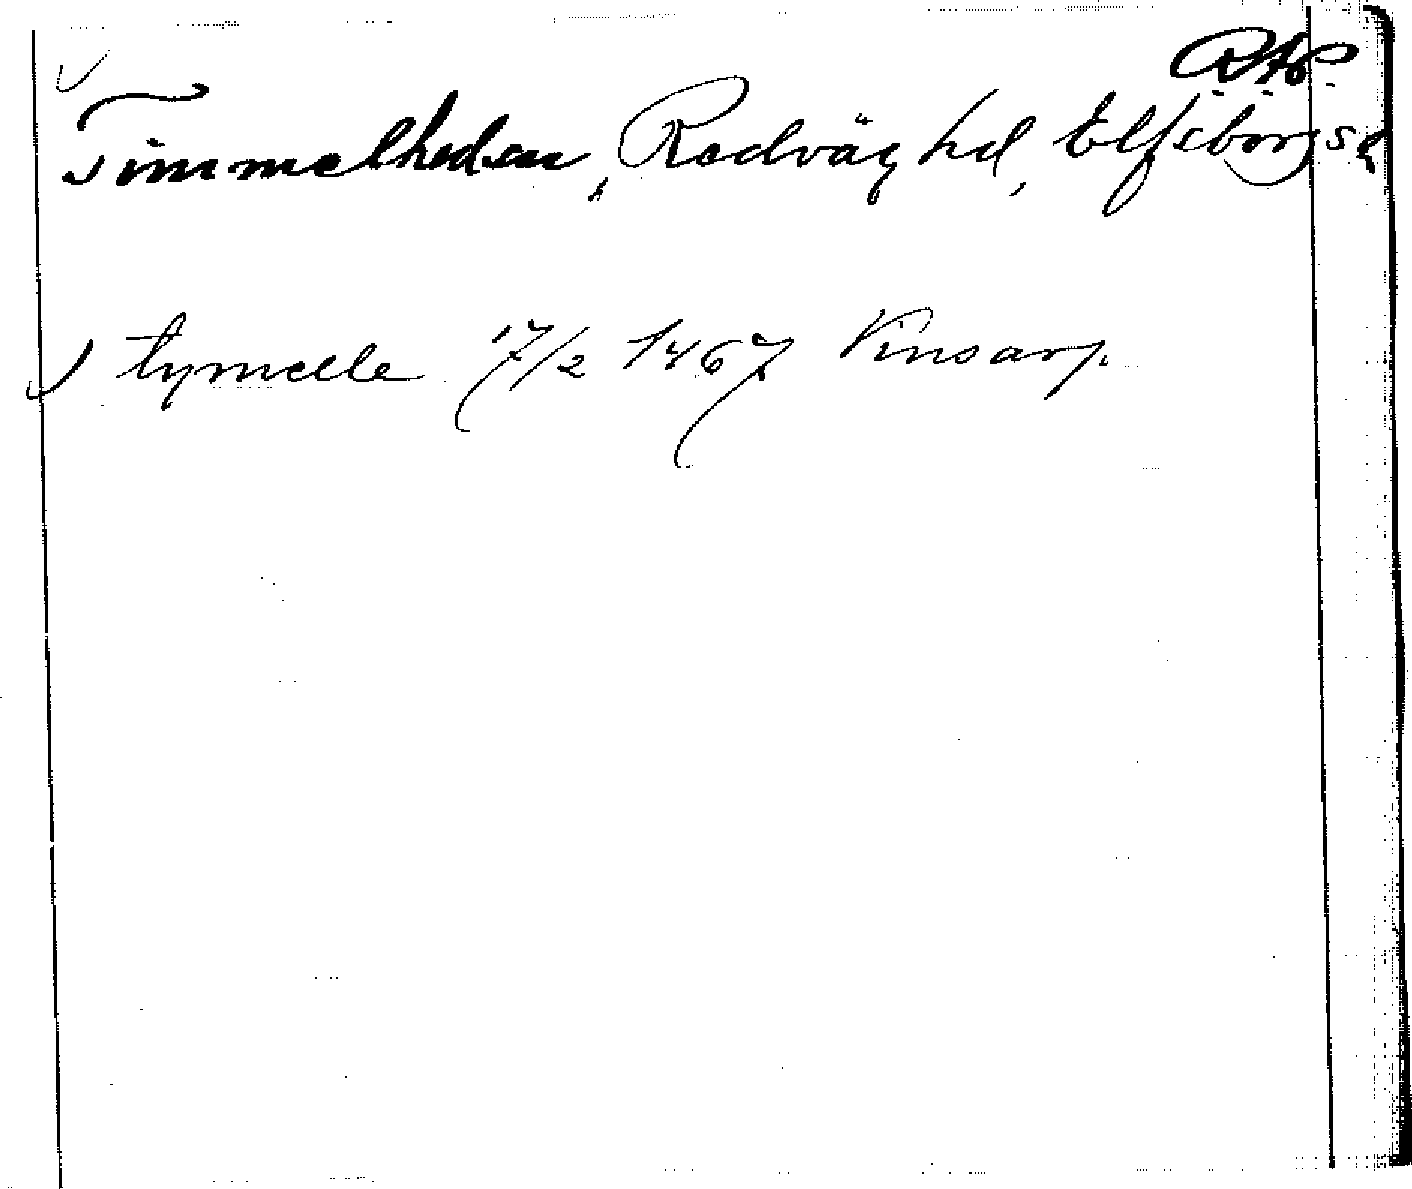 RAP.
Timmelhed sn, Redväg hd, Elfsborgs l
tymelle 17/2 1467 Vinsarp.